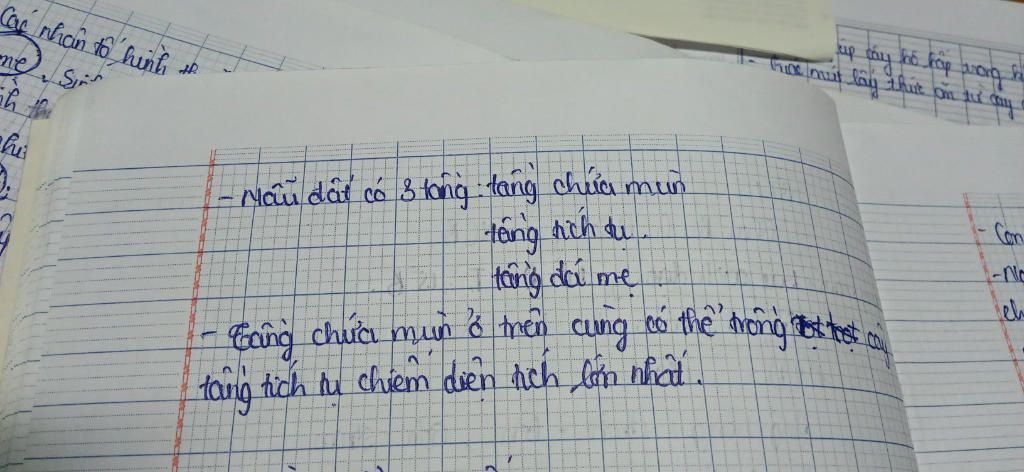 Các nhân tố hình th
mẹ, Sinh
úp cây hô hấp trong
mút lấy thức ăn từ cây
- Mẫu đất có 3 tầng: tầng chứa mùn
tầng tích tụ.
tầng đá mẹ.
- Tầng chứa mùn ở trên cùng có thể trồng cây
tầng tích tụ chiếm diện tích lớn nhất.
- Con